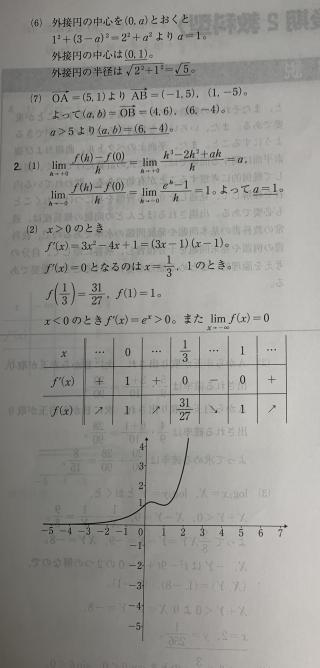 (6) 外接円の中心を(0, a)とおくと
1²+(3−a)²=2²+a² より a=1。
外接円の中心は(0, 1)。
外接円の半径は√(2²+1²)=√5。
(7) OA=(5, 1)より AB=(−1, 5), (1, −5)。
よって(a, b)=OB=(4, 6), (6, −4)。
a>5より(a, b)=(6, −4)。
2. (1) lim h→+0 (f(h)−f(0))/h = lim h→+0 (h³−2h²+ah)/h = a,
lim h→−0 (f(h)−f(0))/h = lim h→−0 (eʰ−1)/h = 1。よって a=1。
(2) x>0のとき
f′(x)=3x²−4x+1=(3x−1)(x−1)。
f′(x)=0となるのは x=1/3, 1のとき。
f(1/3)=31/27, f(1)=1。
x<0のとき f′(x)=eˣ>0。また lim x→−∞ f(x)=0
x … 0 … 1/3 … 1 …
f′(x) + 1 + 0 − 0 +
f(x) ↗ 1 ↗ 31/27 ↘ 1 ↗
4
3
2
1
−5 −4 −3 −2 −1 0 1 2 3 4 5 6 7
−1
−2
−3
−4
−5